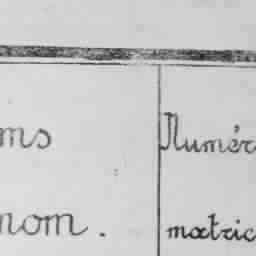 ms
Numér
nom.
matric